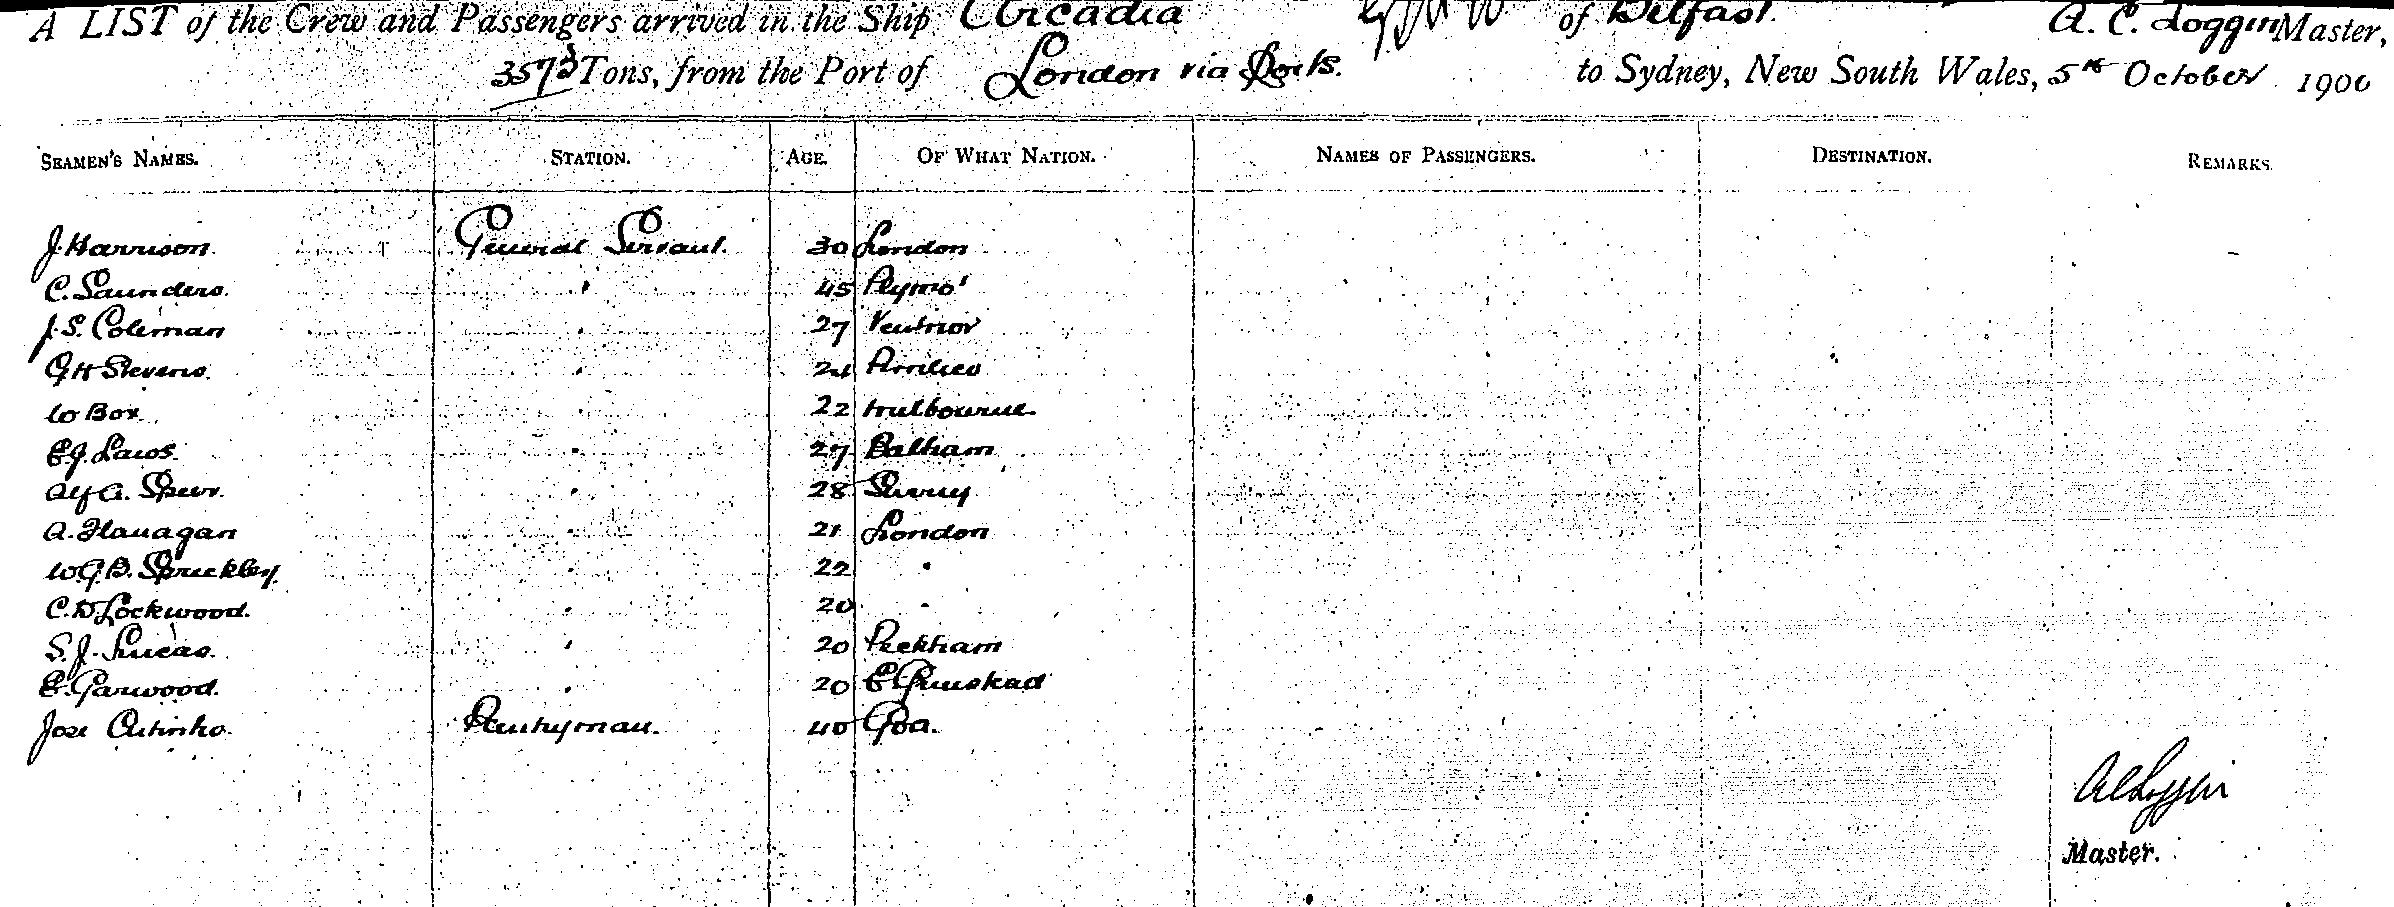 A LIST of the Crew and Passengers arrived in the Ship Arcadia of Belfast. A. C. Loggin Master,
3573 Tons, from the Port of London via Ports. to Sydney, New South Wales, 5th October 1900
SEAMEN'S NAMES. STATION. AGE. OF WHAT NATION. NAMES OF PASSENGERS. DESTINATION. REMARKS.
J. Harrison. General Servant. 30 London
C. Saunders. " 45 Plymo'
J. S. Coleman " 27 Ventnor
G H Stevens. " 24 Pimlico
W Box. " 22 Melbourne.
E. J. Laws. " 27 Balham
Alf A. Spurr. " 28 Surrey
A. Flanagan " 21 London
W. G. B. Spruckley " 22 "
C. D. Lockwood. " 20 "
S. J. Lucas. " 20 Peckham
E. Garwood. " 20 E Grinstead
Jose Cutinho. Pantryman. 40 Goa.
A C Loggin
Master.